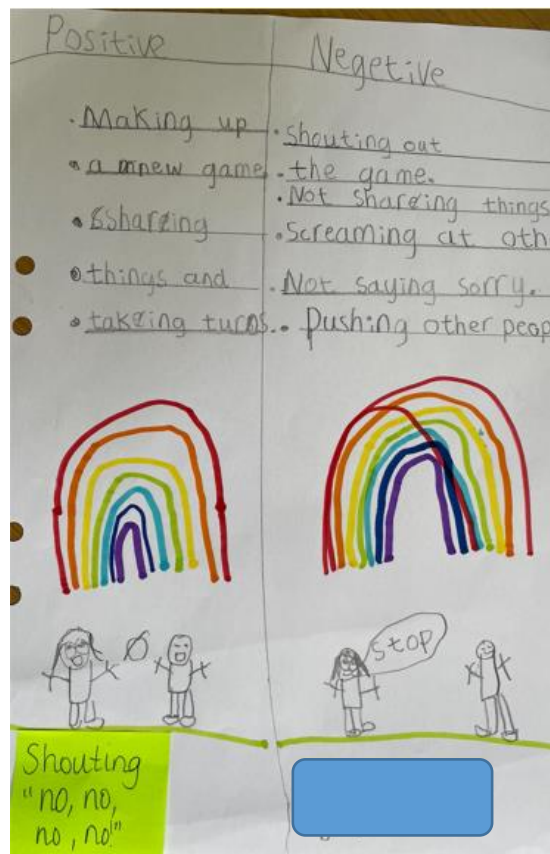 Positive
Making up
a new game
sharing
things and
taking turns.
Negetive
Shouting out
the game.
Not sharing things
Screaming at oth
Not saying sorry.
Pushing other peop
stop
Shouting
"no, no,
no, no!"